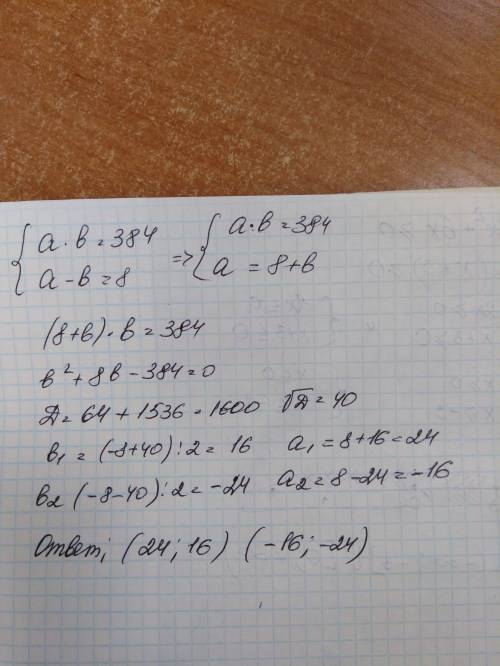 { a·b=384 => { a·b=384
{ a-b=8 { a = 8+b
(8+b)·b=384
b²+8b-384=0
D=64+1536=1600 √D=40
b₁=(-8+40):2=16 a₁=8+16=24
b₂(-8-40):2=-24 a₂=8-24=-16
Ответ; (24;16) (-16;-24)